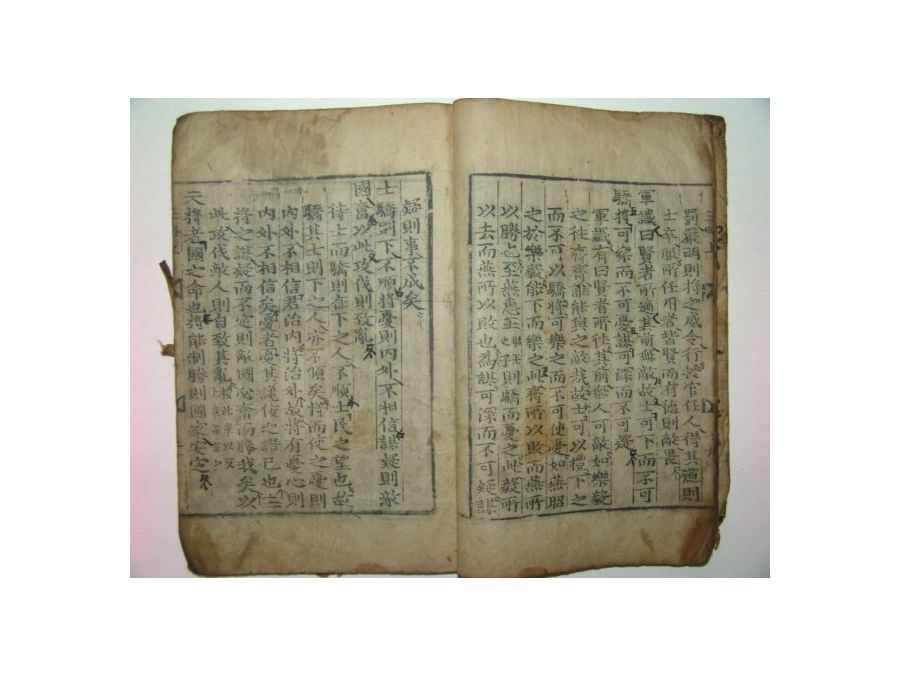 罰嚴明則將之威令行於官任人得其道則
士卒服所任用者皆賢而有德則敵畏
軍讖曰賢者所適其前無敵故士可下而不可
驕將可樂而不可憂謀可深而不可疑
軍讖有曰賢者所往其前無人可敵如樂毅
之往齊齊誰能與之敵哉故士可以禮下之
而不可以驕將可樂之而不可使憂如燕昭
之於樂毅能下而樂之此齊所以敗而燕所
以勝也至燕惠王昭王之子則驕而憂之此毅所
以去而燕所以敗也為謀可深而不可疑謀
疑則事不成矣
士驕則下不順將憂則內外不相信謀疑則敵
國奮以此攻伐則致亂
待士而驕則在下之人不順士民之望也故
驕其士則下之人亦不順矣將而使之憂則
內外不相信君治內將治外故將有憂心則
內外不相信矣憂者憂其讒佞之譖己也主
將之謀疑而不定則敵國心奮而勝我矣以
此攻伐敵人則自致其亂
夫將者國之命也將能制勝則國家安定